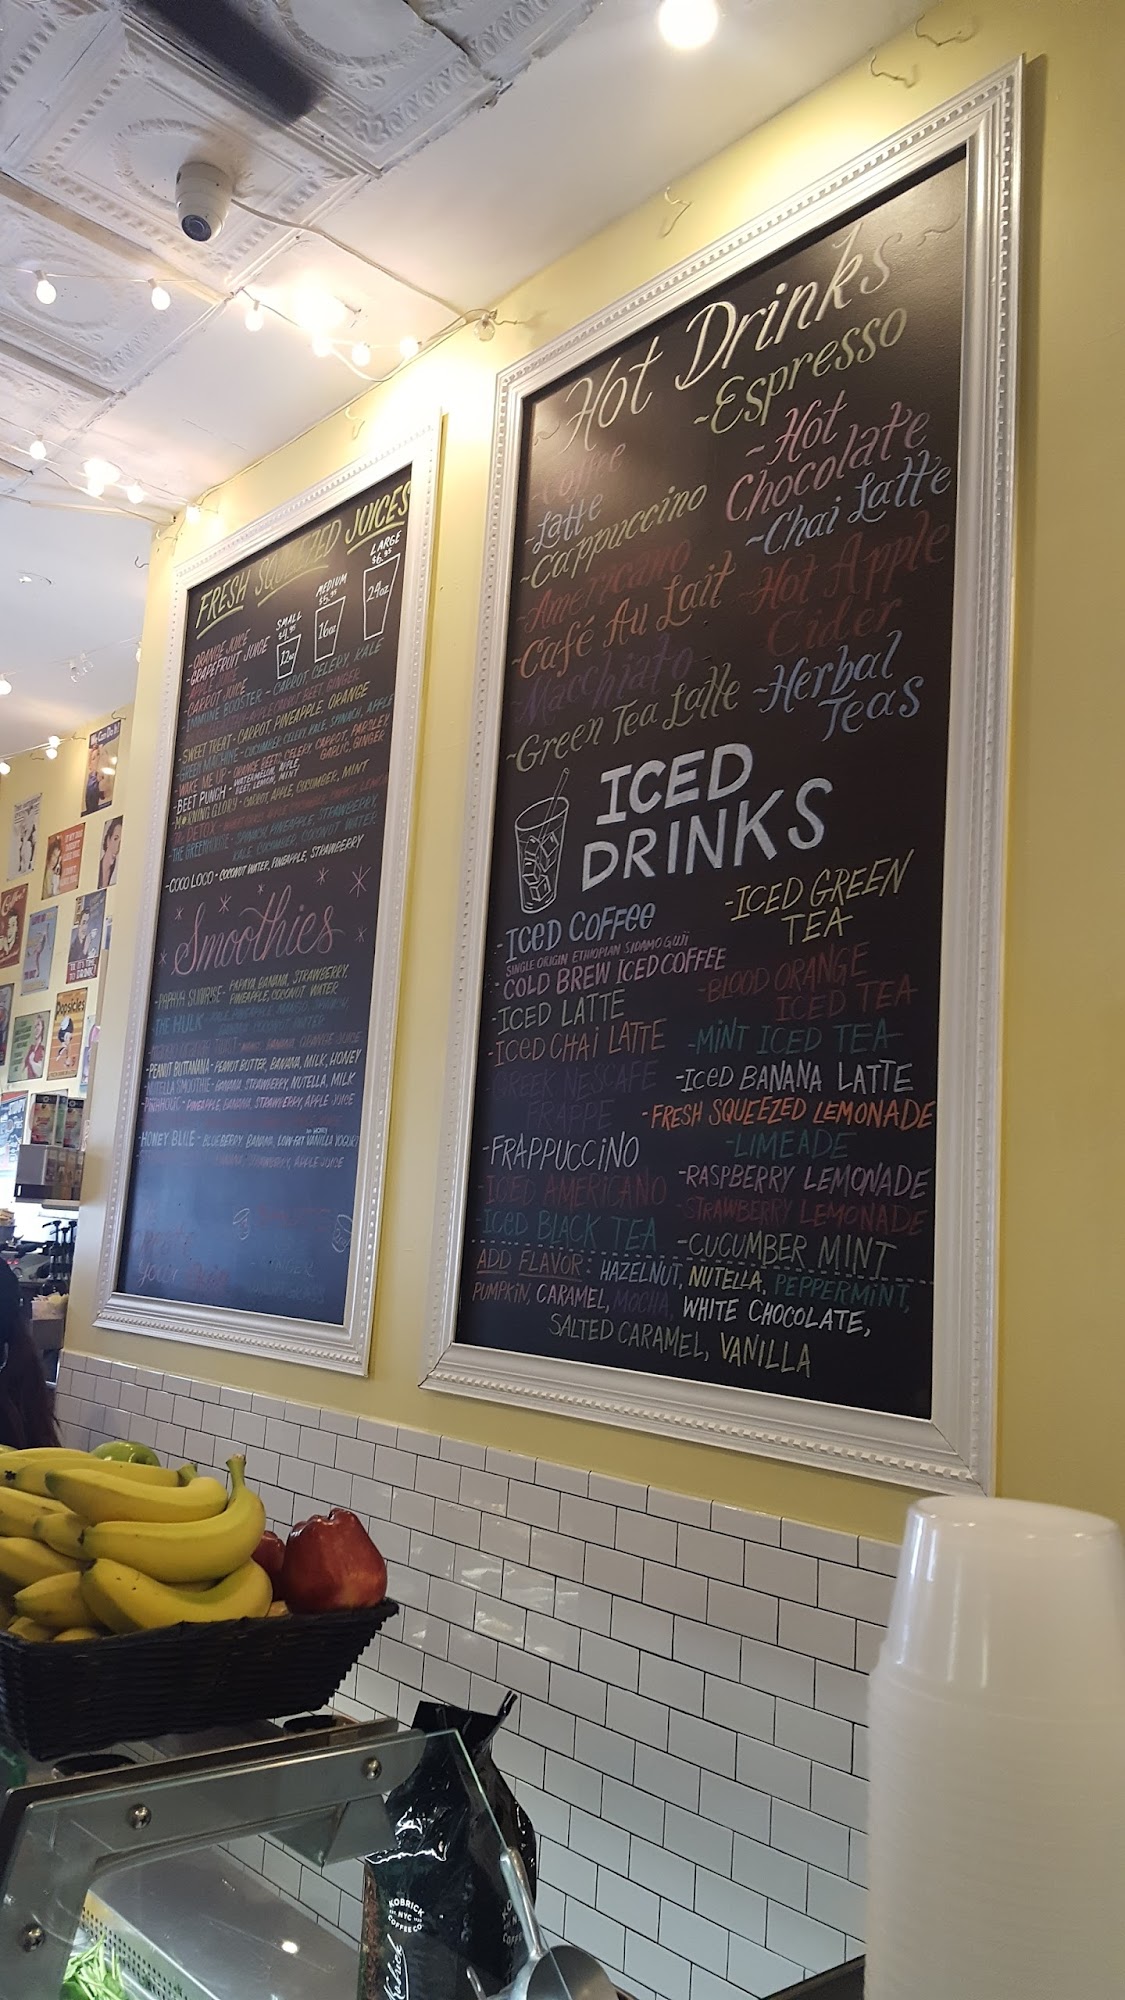 FRESH SQUEEZED JUICES
SMALL
$4.95
12oz
MEDIUM
$5.95
16oz
LARGE
$6.95
24oz
-ORANGE JUICE
-GRAPEFRUIT JUICE
-APPLE JUICE
-CARROT JUICE
-IMMUNE BOOSTER - CARROT, CELERY, KALE
-SWEET TREAT - CARROT, PINEAPPLE, ORANGE
-GREEN MACHINE - CUCUMBER, CELERY, KALE, SPINACH, APPLE
-WAKE ME UP - ORANGE, BEET, CELERY, CARROT, PARSLEY
GARLIC, GINGER
-BEET PUNCH - WATERMELON, APPLE,
BEET, LEMON, MINT
-MORNING GLORY - CARROT, APPLE, CUCUMBER, MINT
-The DETOX -
-THE GREENHOUSE - SPINACH, PINEAPPLE, STRAWBERRY,
KALE, CUCUMBER, COCONUT WATER
-COCO LOCO - COCONUT WATER, PINEAPPLE, STRAWBERRY
Smoothies
-PAPAYA SUNRISE - PAPAYA, BANANA, STRAWBERRY,
PINEAPPLE, COCONUT WATER
-THE HULK
-PEANUT BUTTANANA - PEANUT BUTTER, BANANA, MILK, HONEY
-NUTELLA SMOOTHIE - BANANA, STRAWBERRY, NUTELLA, MILK
PINEAPPLE, BANANA, STRAWBERRY, APPLE JUICE
-HONEY BLUE - BLUEBERRY, BANANA, LOW-FAT VANILLA YOGURT
BANANA, STRAWBERRY, APPLE JUICE
create
your own
~Hot Drinks~
~Coffee
~Latte
~Cappuccino
~Americano
~Café Au Lait
~Macchiato
~Green Tea Latte
~Espresso
~Hot
Chocolate
~Chai Latte
~Hot Apple
Cider
~Herbal
Teas
ICED
DRINKS
-ICED COFFEE
SINGLE ORIGIN ETHIOPIAN SIDAMO GUJI
-COLD BREW ICED COFFEE
-ICED LATTE
-ICED CHAI LATTE
-GREEK NESCAFE
FRAPPE
-FRAPPUCCINO
-ICED AMERICANO
-ICED BLACK TEA
-ICED GREEN
TEA
-BLOOD ORANGE
ICED TEA
-MINT ICED TEA
-ICED BANANA LATTE
-FRESH SQUEEZED LEMONADE
-LIMEADE
-RASPBERRY LEMONADE
-STRAWBERRY LEMONADE
-CUCUMBER MINT
ADD FLAVOR: HAZELNUT, NUTELLA, PEPPERMINT,
PUMPKIN, CARAMEL, MOCHA, WHITE CHOCOLATE,
SALTED CARAMEL, VANILLA
We Can Do It!
Popsicles
KOBRICK
NYC
COFFEE CO.
Kobrick